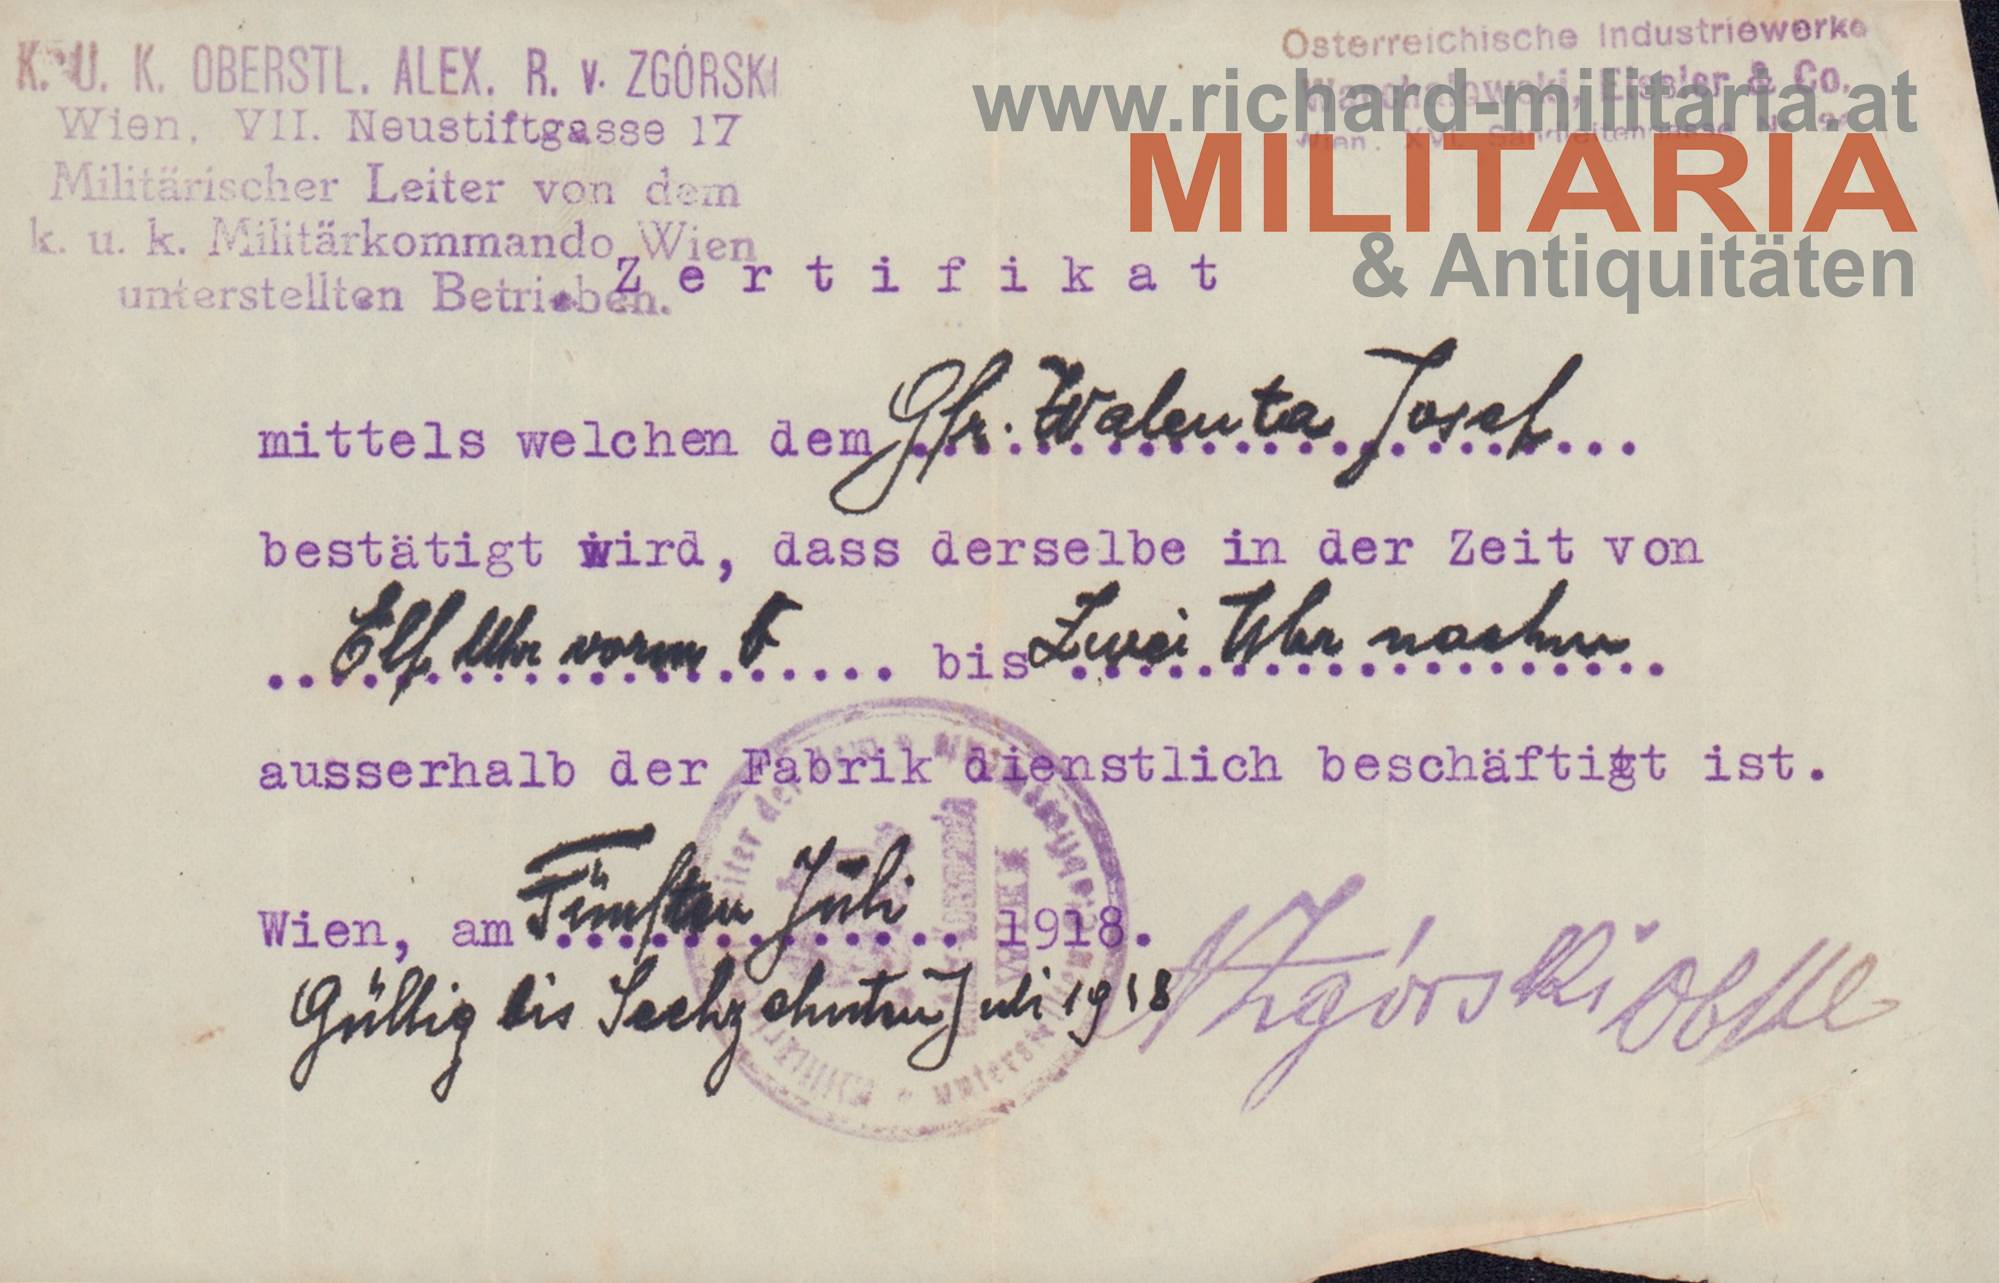 K. U. K. OBERSTL. ALEX. R. v. ZGÓRSKI
Wien, VII. Neustiftgasse 17
Militärischer Leiter von dem
k. u. k. Militärkommando Wien
unterstellten Betrieben.
Österreichische Industriewerke
Warchalowski, Eissler & Co.
Wien, XVI.
www.richard-militaria.at
MILITARIA
& Antiquitäten
Zertifikat
mittels welchen dem Gfr. Walenta Josef
bestätigt wird, dass derselbe in der Zeit von
Elf Uhr vorm bis Zwei Uhr nachm
ausserhalb der Fabrik dienstlich beschäftigt ist.
Wien, am Fünften Juli 1918.
Gültig bis Sechzehnten Juli 1918
Zgórski Obstl